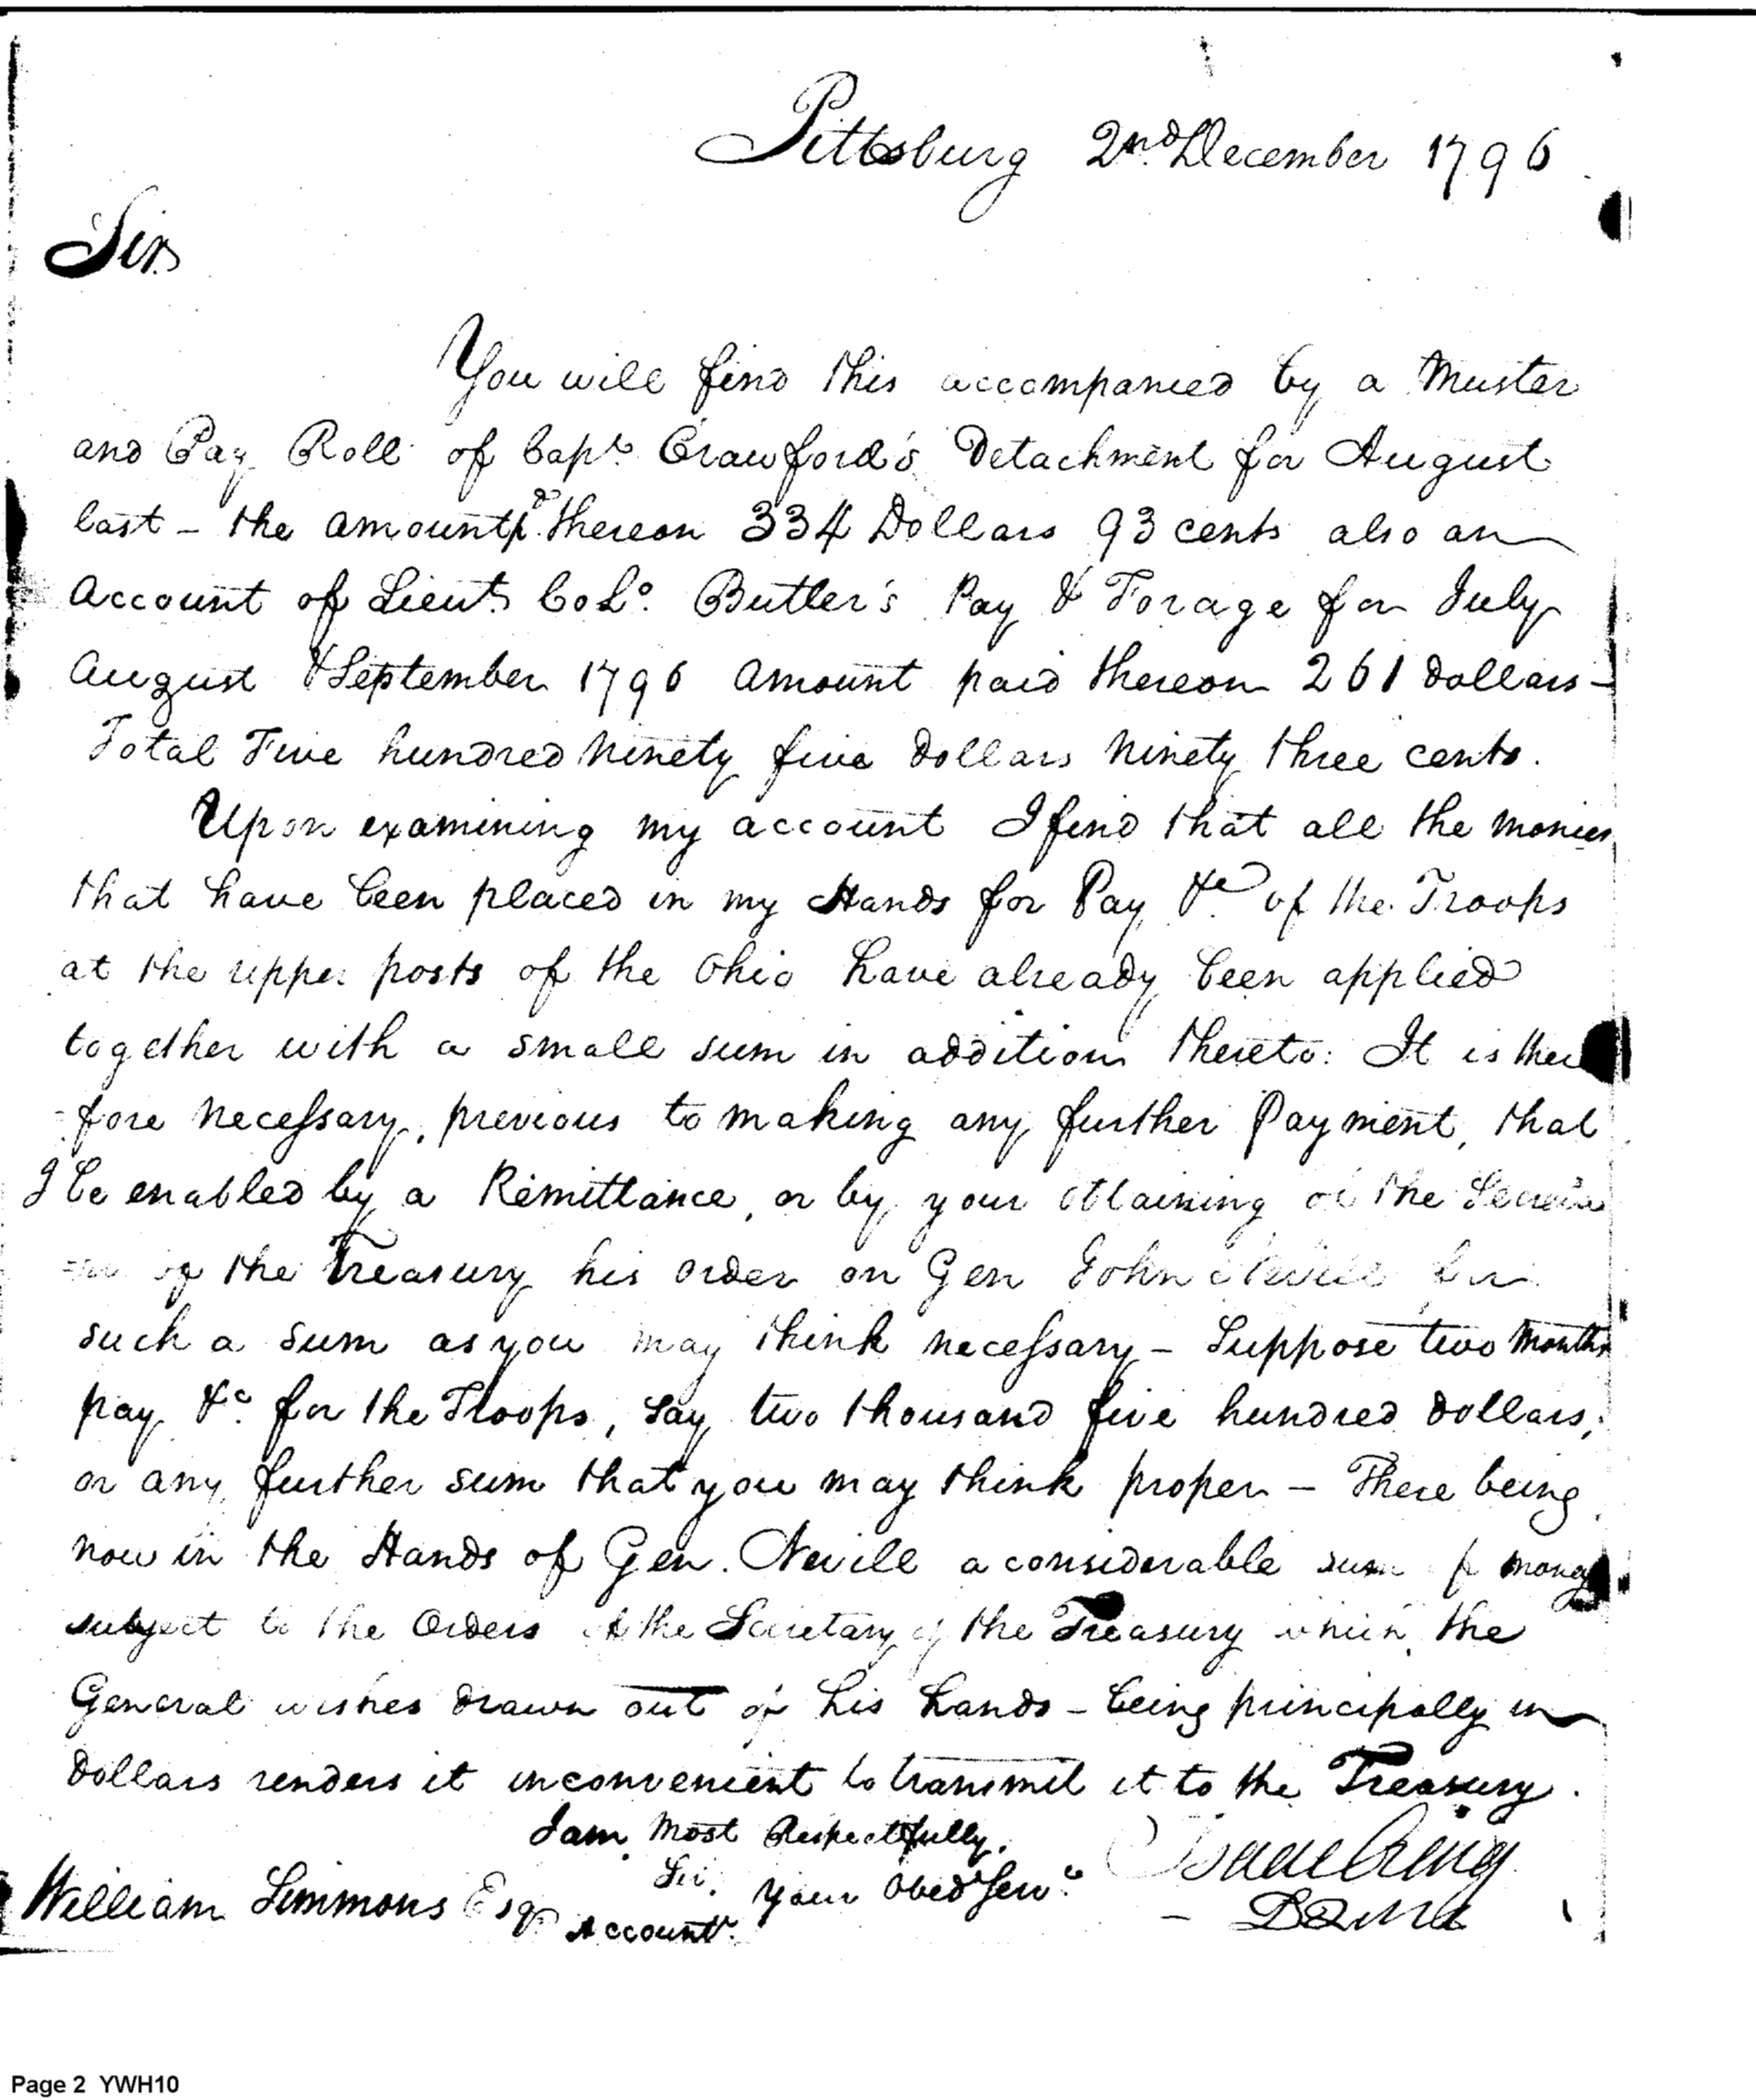 Pittsburg 2nd December 1796
Sir
You will find this accompanied by a Muster
and Pay Roll of Capt. Crawford's Detachment for August
last - the amount pd. thereon 334 Dollars 93 cents also an
Account of Lieut. Col. Butler's Pay & Forage for July
August & September 1796 amount paid thereon 261 dollars -
Total Five hundred ninety five dollars ninety three cents.
Upon examining my account I find that all the monies
that have been placed in my Hands for Pay &c of the Troops
at the upper posts of the Ohio have already been applied
together with a small sum in addition thereto: It is there
=fore necessary, previous to making any further Payment, that
I be enabled by a Remittance, or by your obtaining of the Secreta
of the Treasury his order on Gen John Nevill for
such a sum as you may think necessary - Suppose two months
pay &c. for the Troops, say two thousand five hundred dollars,
or any further sum that you may think proper - There being
now in the Hands of Gen. Nevill a considerable sum of money
subject to the Orders of the Secretary of the Treasury which the
General wishes drawn out of his hands - being principally in
dollars renders it inconvenient to transmit it to the Treasury.
I am Most Respectfully,
Sir, your Obed Serv. Isaac Craig
DQM
William Simmons Esq.
Account.
Page 2 YWH10